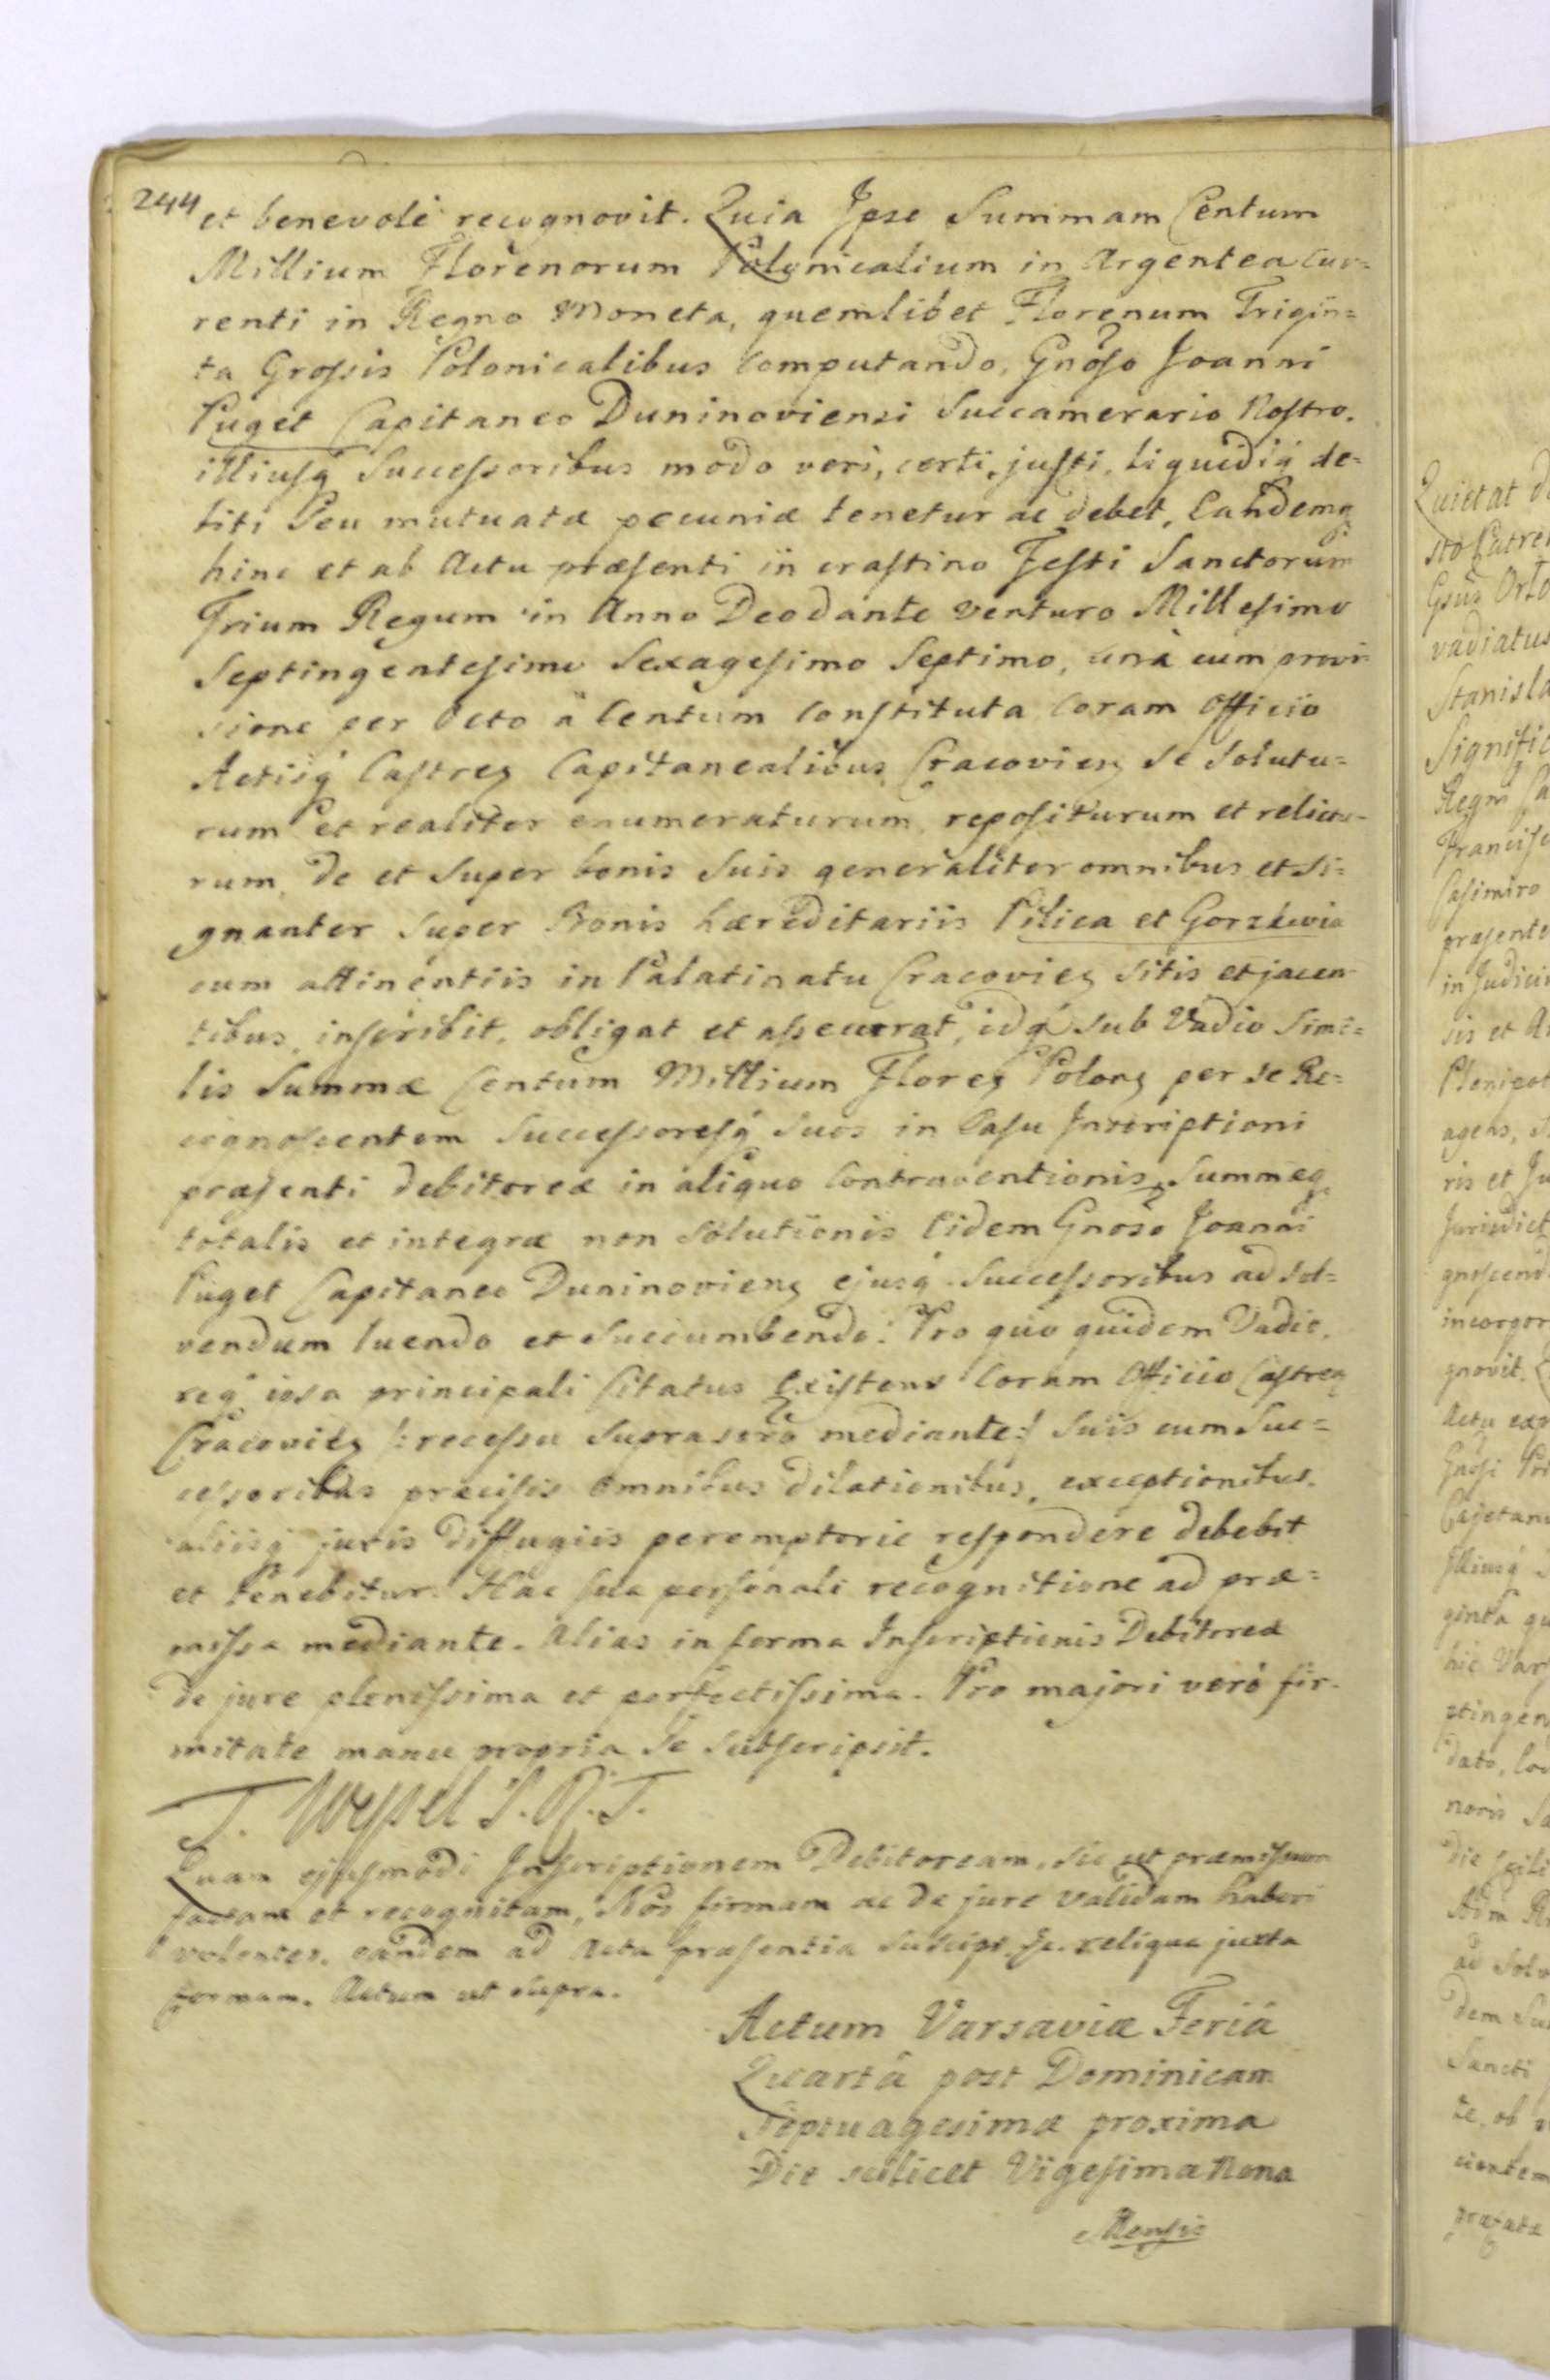 244
et benevolè recognovit. Quia Ipse Summam Centum
Millium Florenorum Polonicalium in Argentea Cur=
renti in Regno Moneta, quemlibet Florenum Trigin=
ta Grossis Polonicalibus computando, Gnoso Joanni
Puget Capitaneo Duninoviensi Succamerario Nostro.
illiusq Successoribus modo veri, certi, justi, liquidiq de=
biti Seu mutuatæ pecuniæ tenetur ac debet, Eandemq
hinc et ab Actu præsenti in crastino Festi Sanctorum
Trium Regum in Anno Deo dante venturo Millesimo
Septingentesimo Sexagesimo Septimo, unà cum provi=
sione per Octo à Centum Constituta Coram Officio
Actisq Castren Capitanealibus Cracovien se Solutu=
rum et realiter enumeraturum, repositurum et relictu=
rum, de et Super bonis Suis generaliter omnibus et Si=
gnanter Super Bonis hæreditariis Pilica et Gorzkwia
cum attinentiis in Palatinatu Cracovien Sitis et jacen=
tibus, inscribit, obligat et assecurat, idq sub Vadio Simi=
lis Summæ Centum Millium Floren Polon per se Re=
cognoscentem Successoresq Suos in Casu Inscriptioni
præsenti debitoreæ in aliquo Contraventionis, Summæq
totalis et integræ non Solutionis Eidem Gnoso Joanni
Puget Capitaneo Duninovien ejusq Successoribus ad Sol=
vendum luendo et Succumbendo. Pro quo quidem Vadio,
req ipsa principali Citatus Existens Coram Officio Castren
Cracovien /: recessu suprascro mediante :/ Suis cum Suc=
cessoribus præcisis Omnibus dilationibus, exceptionibus,
aliisq juris diffugiis peremptorie respondere debebit
et tenebitur. Hac sua personali recognitione ad præ=
missa mediante. Alias in forma Inscriptionis Debitoreæ
de jure plenissima et perfectissima. Pro majori verò fir=
mitate manu propria Se Subscripsit.
T. Wessel P. R. T.
Quam ejusmodi Inscriptionem Debitoream, sic ut præmissum
factam et recognitam, Nos firmam ac de jure validam haberi
volentes, eandem ad Acta præsentia suscipi &c. reliqua juxta
formam. Actum ut supra.
Actum Varsaviæ Feriâ
Quartâ post Dominicam
Septuagesimæ proxima
Die scilicet Vigesima Nona
Mensis
Quietat
vadiatus
Stanisla
Regni
Francisc
Casimiro
præsente
in Judici
sis et A
Plenipot
agens,
ris et Ju
Jurisdict
incorpor
gnovit.
Cajetan
ginta qu
ptingen
dato, loc
noris Sa
ad Solv
dem Su
Sancti
te, ob
præfatæ